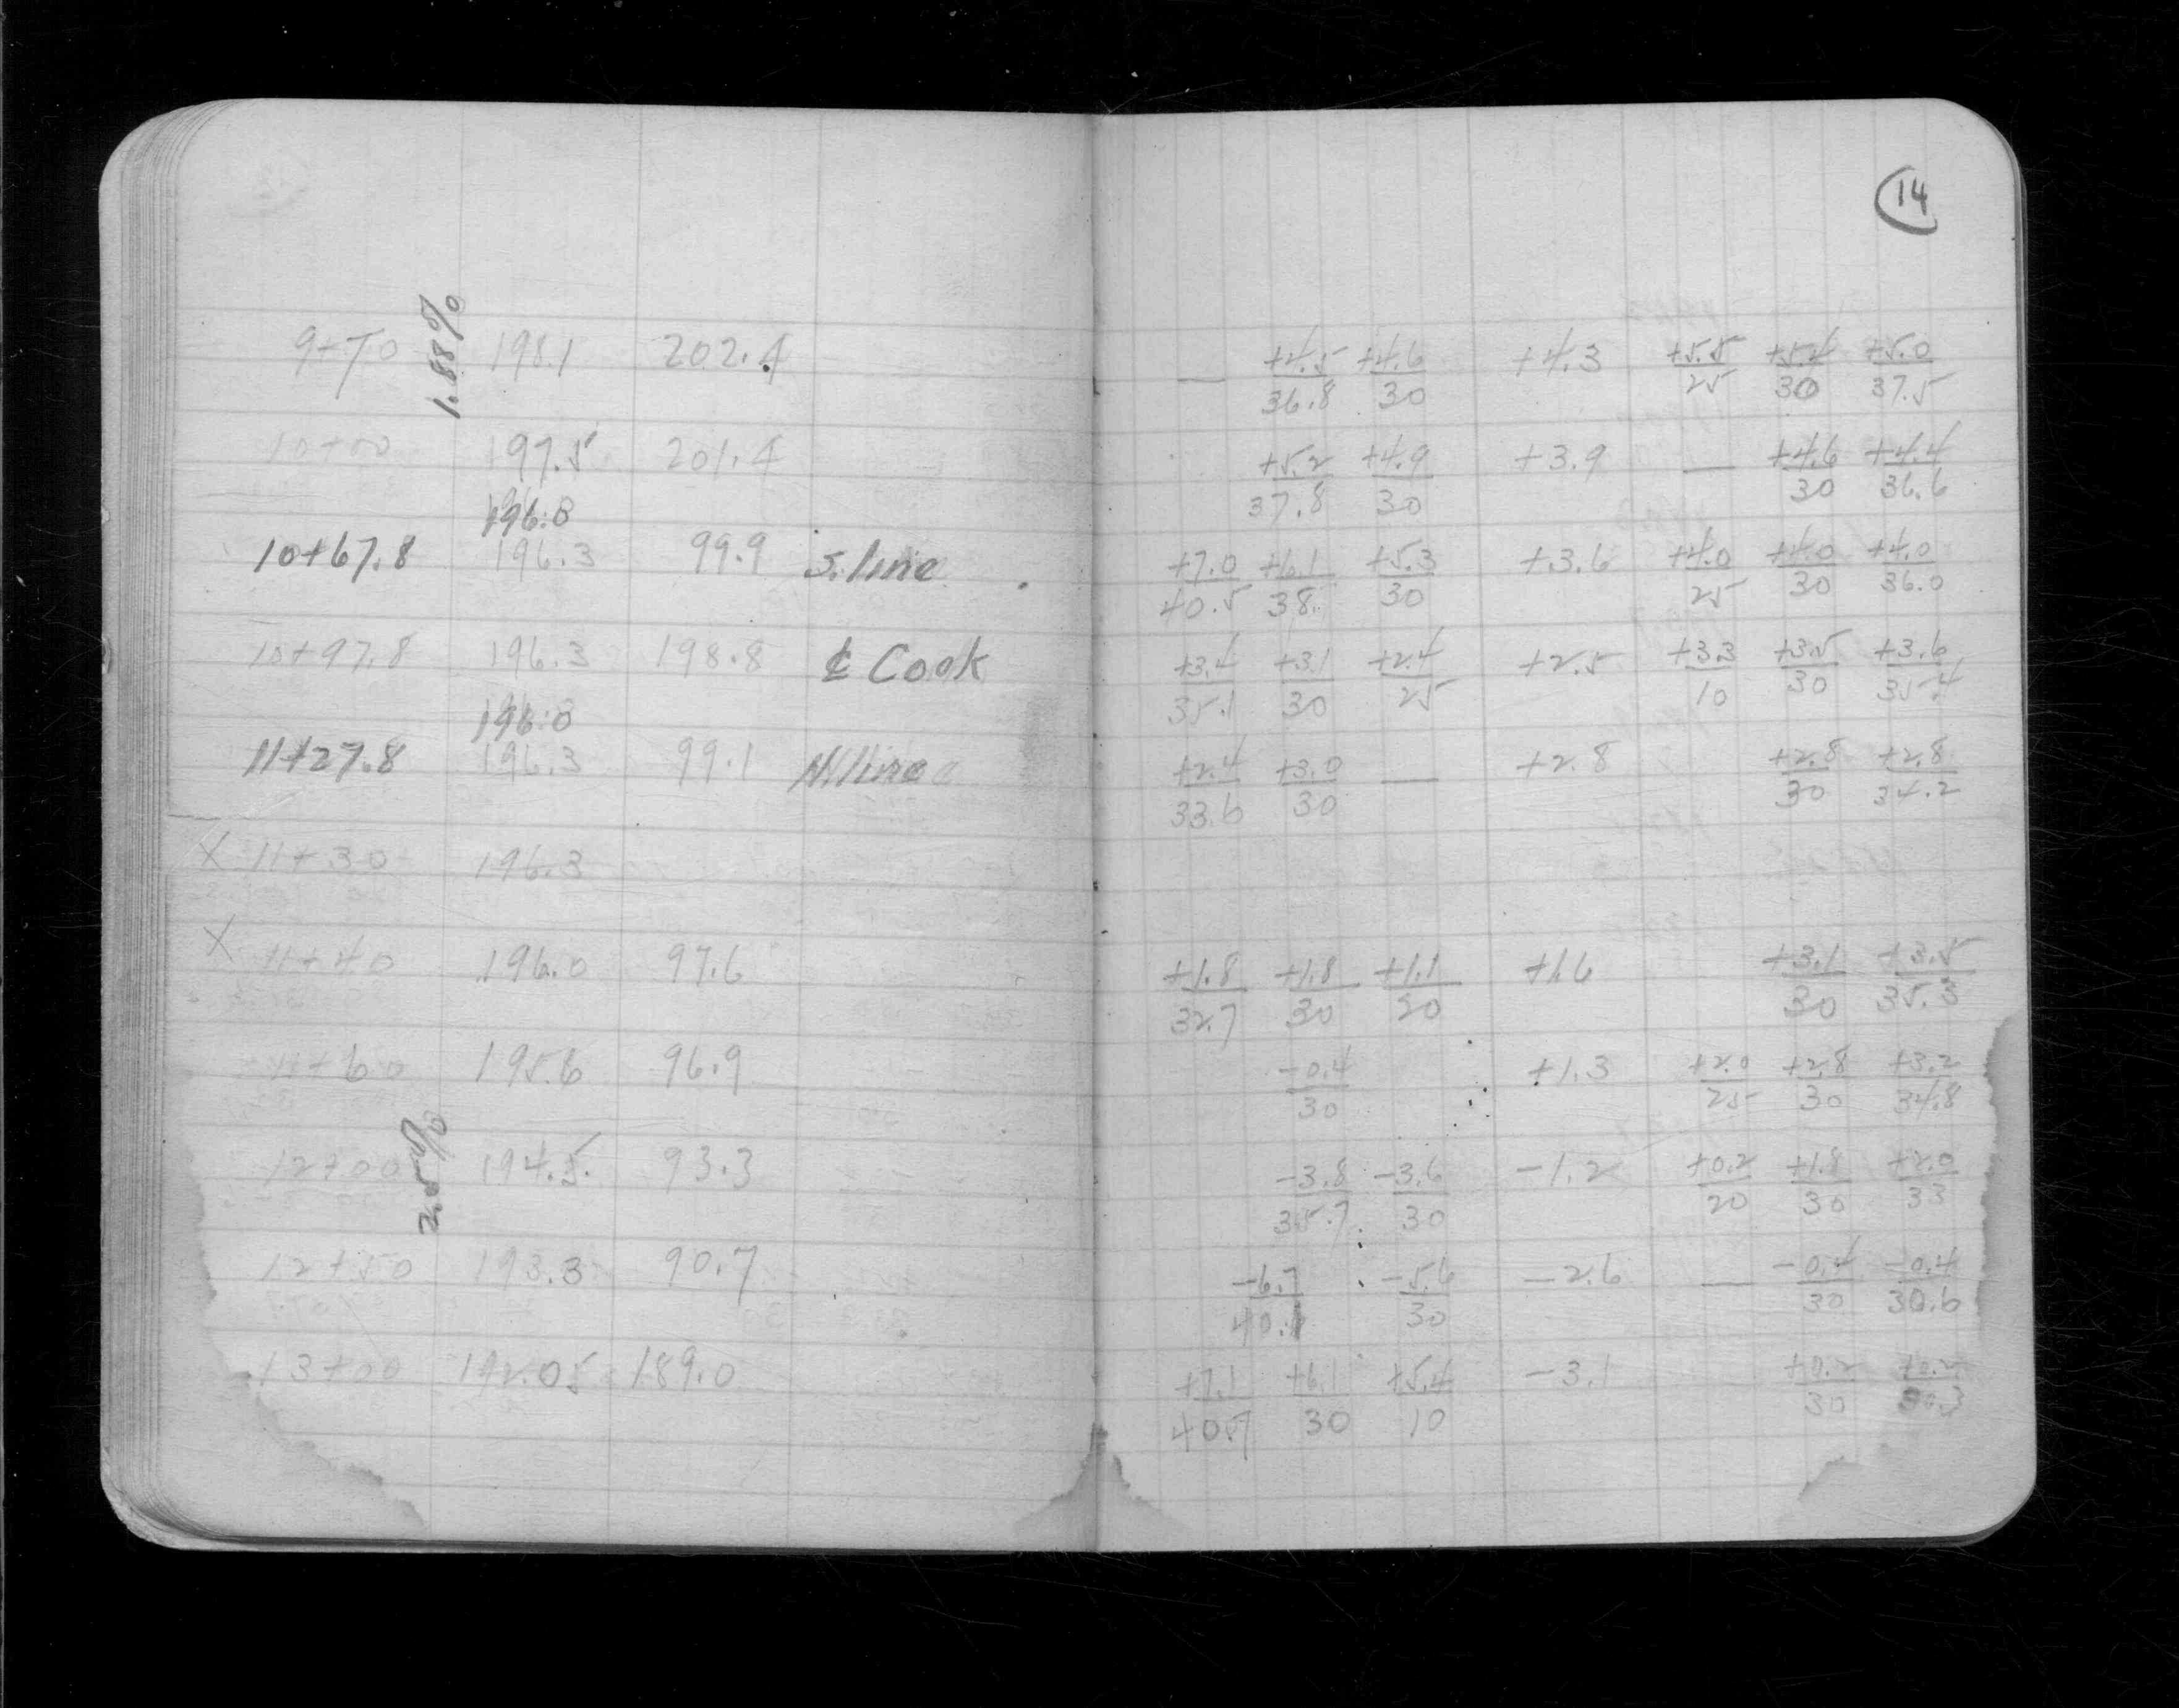 14
1.88%
9+70 198.1 202.4 — +4.5/36.8 +4.6/30 +4.3 +5.5/25 +5.4/30 +5.0/37.5
10+00 197.5 201.4 +5.2/37.8 +4.9/30 +3.9 — +4.6/30 +4.4/36.6
196.8
10+67.8 196.3 99.9 S. line +7.0/40.5 +6.1/38. +5.3/30 +3.6 +4.0/25 +4.0/30 +4.0/36.0
10+97.8 196.3 198.8 ℄ Cook +3.4/35.1 +3.1/30 +2.4/25 +2.5 +3.3/10 +3.5/30 +3.6/35.4
196.8
11+27.8 196.3 99.1 N. line +2.4/33.6 +3.0/30 — +2.8 +2.8/30 +2.8/34.2
X 11+30 196.3
X 11+40 196.0 97.6 +1.8/32.7 +1.8/30 +1.1/20 +1.6 +3.1/30 +3.5/35.3
11+60 195.6 96.9 -0.4/30 +1.3 +2.0/25 +2.8/30 +3.2/34.8
2.5%
12+00 194.5 93.3 -3.8/35.7 -3.6/30 -1.2 +0.2/20 +1.8/30 +2.0/33
12+50 193.3 90.7 -6.7/40.1 -5.6/30 -2.6 — -0.4/30 -0.4/30.6
13+00 192.05 189.0 +7.1/40.7 +6.1/30 +5.4/10 -3.1 +0.2/30 +0.2/30.3